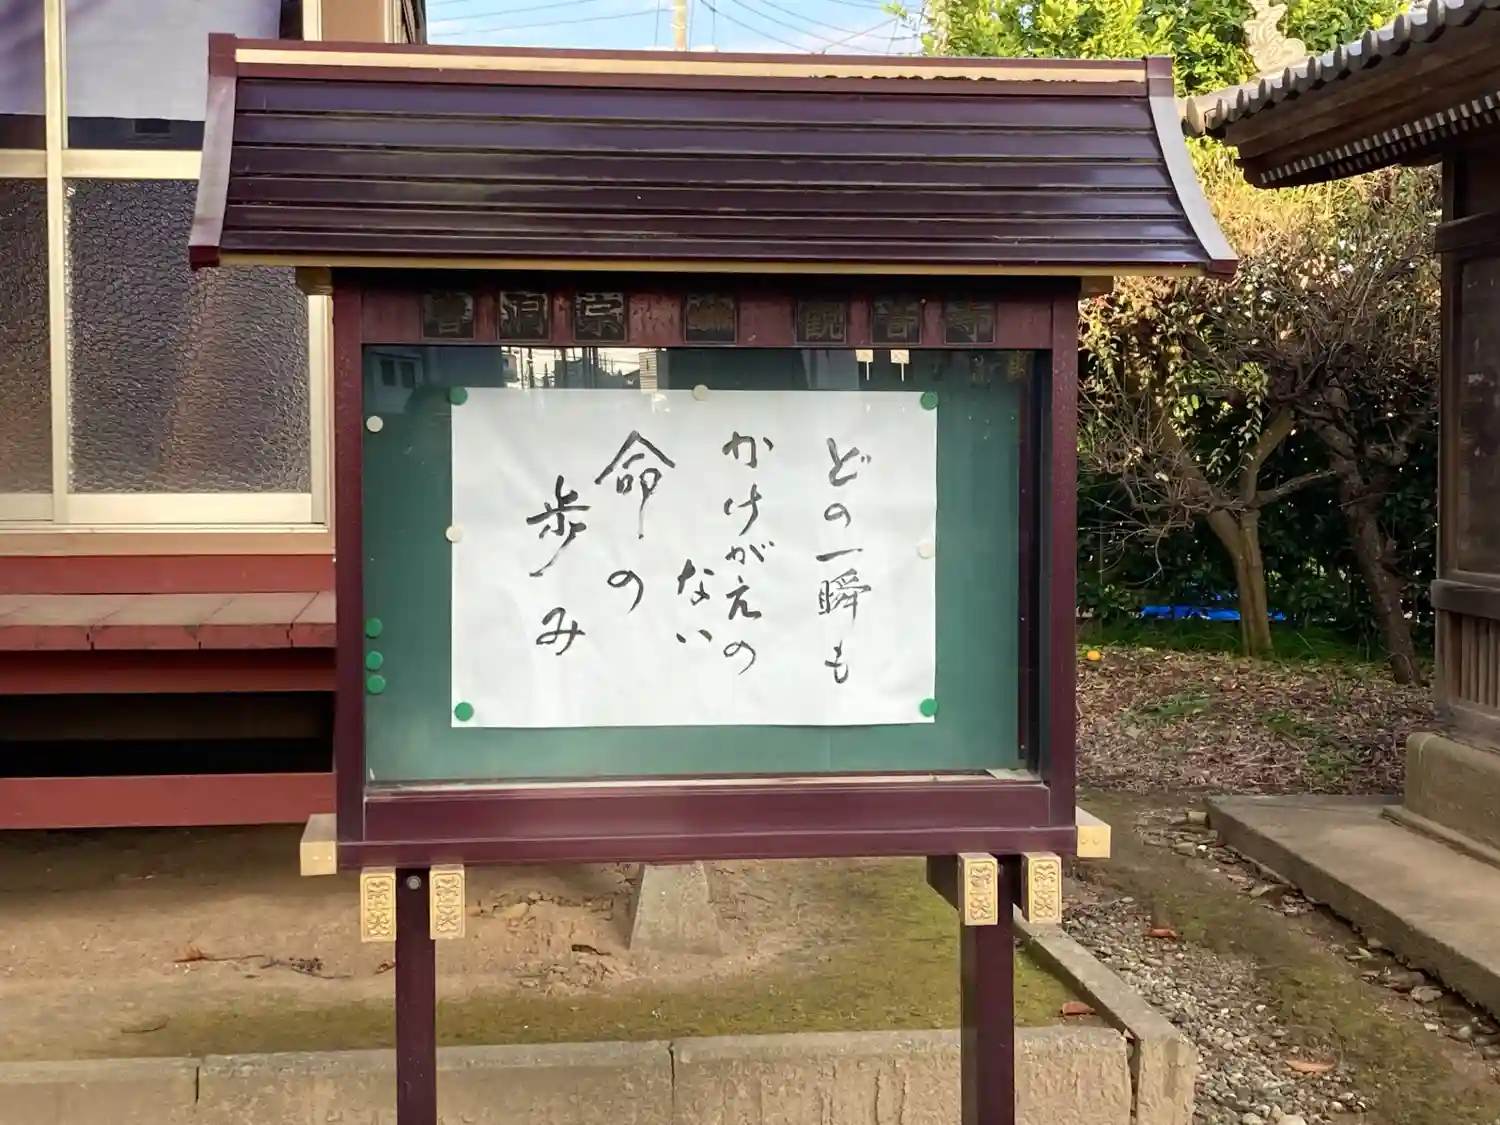 曹洞宗 観音寺
どの一瞬も
かけがえの
ない
命の
歩み